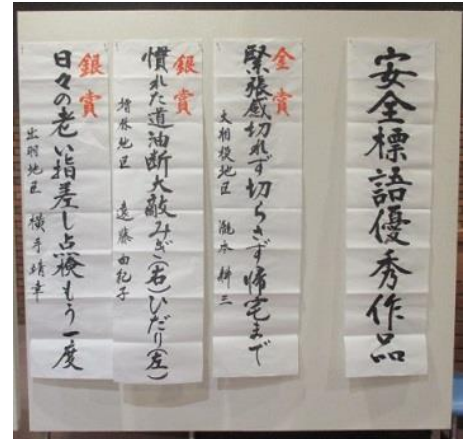 安全標語優秀作品
金賞
緊張感切れず切らさず帰宅まで
大相模地区 瀧本耕三
銀賞
慣れた道油断大敵みぎ(右)ひだり(左)
増林地区 遠藤由紀子
銀賞
日々の老い指差し点検もう一度
出羽地区 横手靖幸